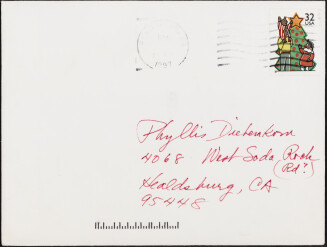 32
USA
Phyllis Diebenkorn
4068 West Soda Rock
(Rd?)
Healdsburg, CA
95448